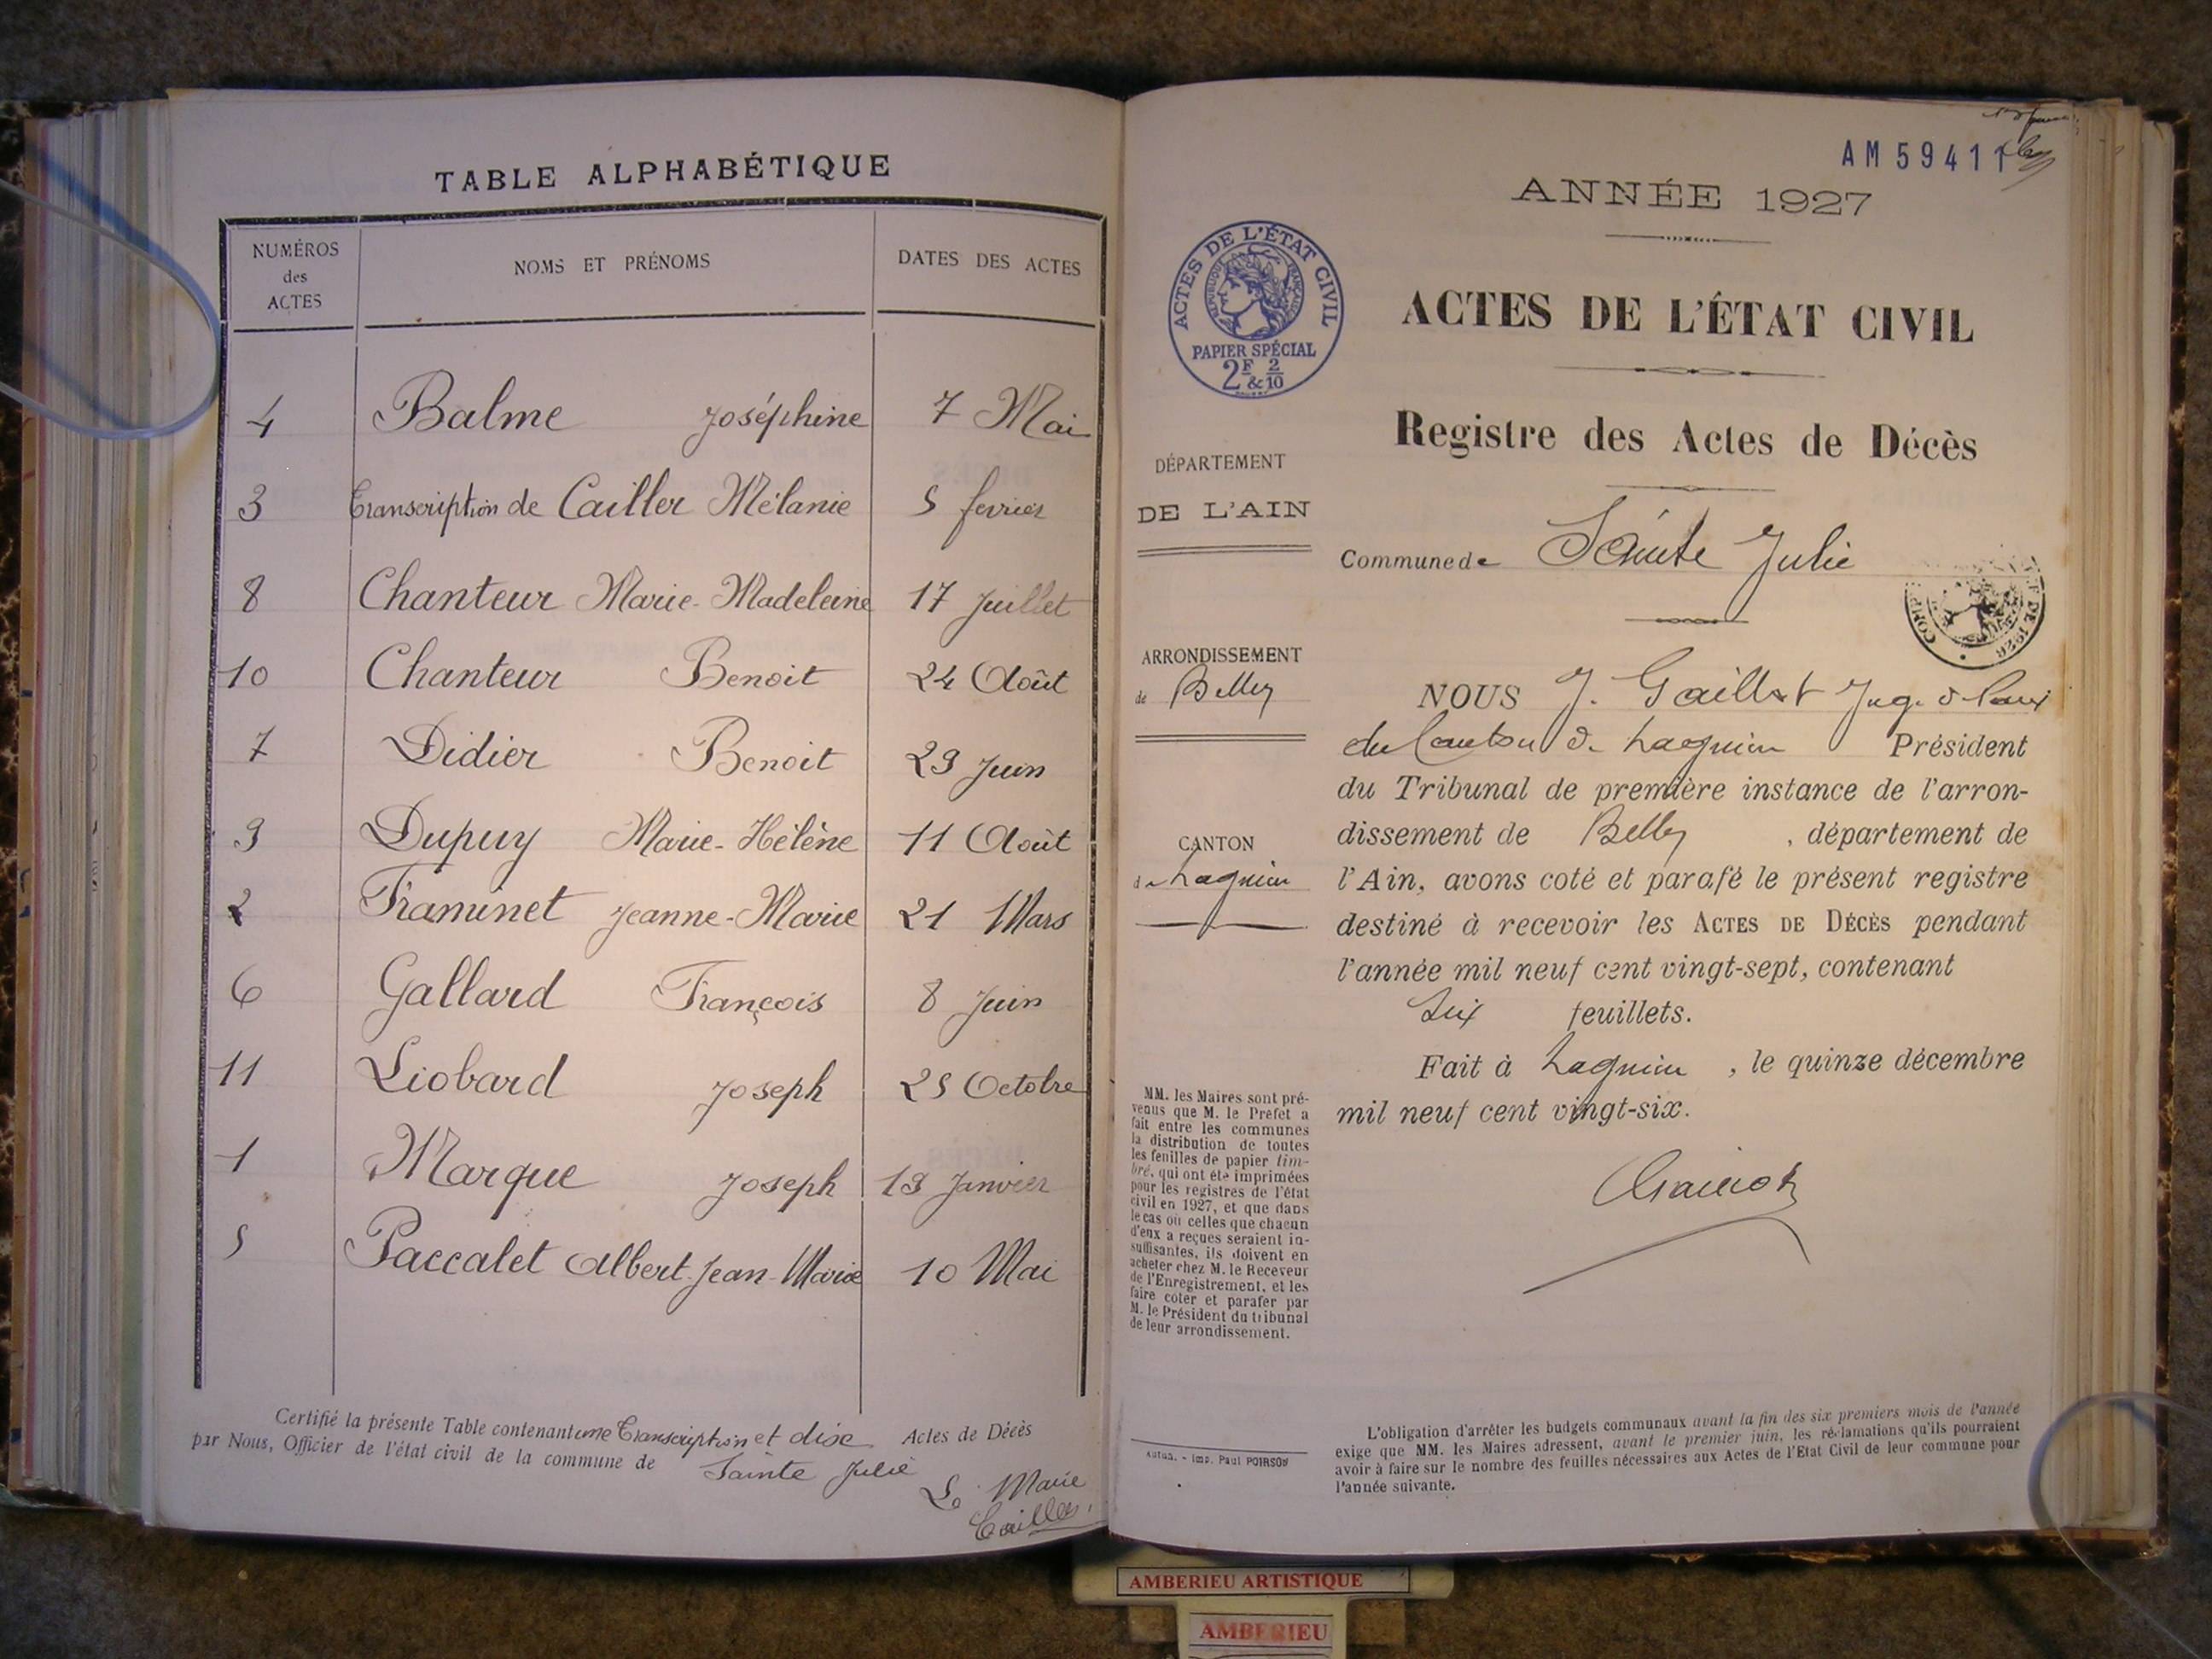 TABLE ALPHABÉTIQUE
NUMÉROS des ACTES NOMS ET PRÉNOMS DATES DES ACTES
4 Balme Joséphine 7 Mai
3 Transcription de Cailler Mélanie 5 fevrier
8 Chanteur Marie-Madeleine 17 Juillet
10 Chanteur Benoit 24 Août
7 Didier Benoit 29 Juin
9 Dupuy Marie-Hélène 11 Août
2 Framinet Jeanne-Marie 21 Mars
6 Gallard François 8 Juin
11 Liobard Joseph 25 Octobre
1 Marque Joseph 19 Janvier
5 Paccalet Albert Jean-Marie 10 Mai
Certifié la présente Table contenant une Transcription et dix Actes de Décès
par Nous, Officier de l'état civil de la commune de Sainte Julie
Le Maire
Cailler
AM 59411
ANNÉE 1927
ACTES DE L'ÉTAT CIVIL
RÉPUBLIQUE FRANÇAISE
PAPIER SPÉCIAL
2F & 2/10
ACTES DE L'ÉTAT CIVIL
Registre des Actes de Décès
DÉPARTEMENT
DE L'AIN
Commune de Sainte Julie
ARRONDISSEMENT
de Belley
CANTON
de Lagnieu
NOUS J. Gaillot Juge de Paix
du Canton de Lagnieu Président
du Tribunal de première instance de l'arron-
dissement de Belley, département de
l'Ain, avons coté et parafé le présent registre
destiné à recevoir les ACTES DE DÉCÈS pendant
l'année mil neuf cent vingt-sept, contenant
Six feuillets.
Fait à Lagnieu, le quinze décembre
mil neuf cent vingt-six.
MM. les Maires sont pré-
venus que M. le Préfet a
fait entre les communes
la distribution de toutes
les feuilles de papier tim-
bré, qui ont été imprimées
pour les registres de l'état
civil en 1927, et que dans
le cas où celles que chacun
d'eux a reçues seraient in-
suffisantes, ils doivent en
acheter chez M. le Receveur
de l'Enregistrement, et les
faire coter et parafer par
M. le Président du tribunal
de leur arrondissement.
Autun. - Imp. Paul POIRSON
L'obligation d'arrêter les budgets communaux avant la fin des six premiers mois de l'année
exige que MM. les Maires adressent, avant le premier juin, les réclamations qu'ils pourraient
avoir à faire sur le nombre des feuilles nécessaires aux Actes de l'Etat Civil de leur commune pour
l'année suivante.
AMBERIEU ARTISTIQUE
AMBERIEU